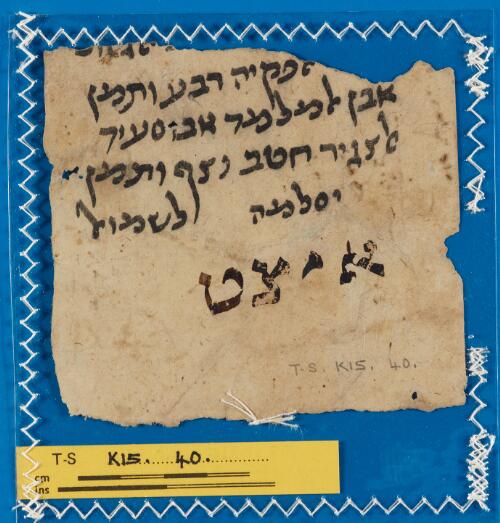 לפקיה רבע ותמן
אבן אבו סעיד
לצגיר חטב נצף ותמן
יסלמה לשמואל
א י צ ט
T-S. K15. 40.
T-S K15. 40.
cm
ins